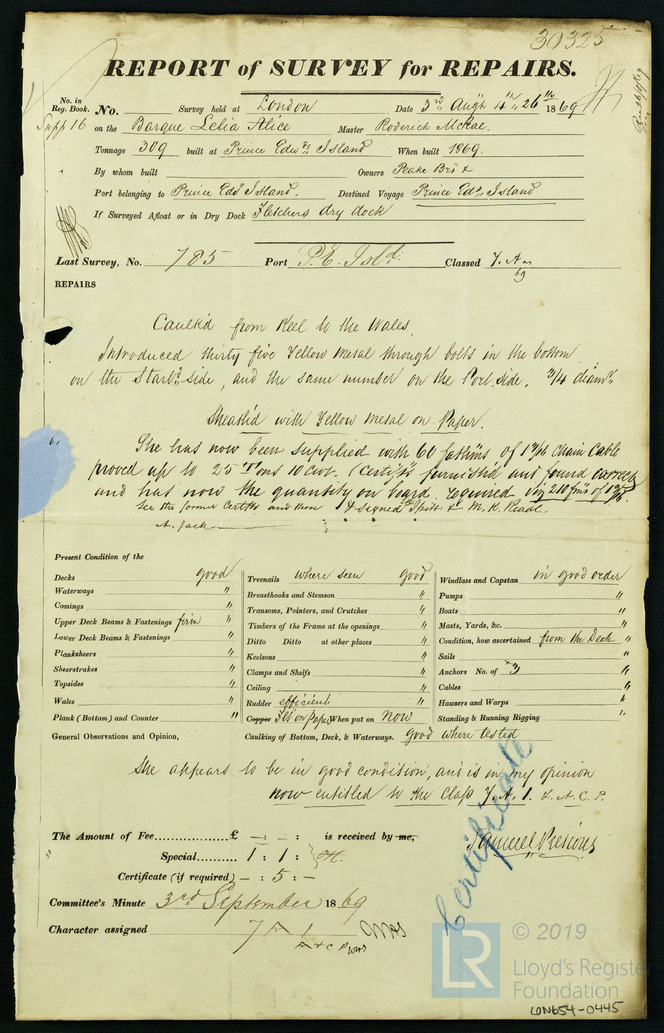 30325
REPORT of SURVEY for REPAIRS.
No. in Reg. Book. No. Survey held at London Date 3rd Augt 4th, 26th 1869
Supp 16 on the Barque Lelia Alice Master Roderick McRae.
Tonnage 309 built at Prince Edwds Island When built 1869.
By whom built Owners Peake Bros &
Port belonging to Prince Edd Island. Destined Voyage Prince Edd Island
If Surveyed Afloat or in Dry Dock Fletchers dry dock
Last Survey, No. 785 Port P.E. Isld. Classed 7. A
69
REPAIRS
Caulk'd from Keel to the Wales.
Introduced thirty five Yellow Metal through bolts in the bottom
on the Starbd side, and the same number on the Port side. 3/4 diamtr.
Sheath'd with Yellow Metal on Paper.
She has now been supplied with 60 fathms of 1 3/16 Chain Cable
proved up to 25 Tons 10 cwt. (Certifte furnish'd and found correct
and has now the quantity on board. required viz 210 fms of 1 3/16
See the former Certifte and then signed M. K. Reade.
A. Jack
Present Condition of the
Decks good Treenails where seen good Windlass and Capstan in good order
Waterways " Breasthooks and Stemson " Pumps "
Comings " Transoms, Pointers, and Crutches " Boats "
Upper Deck Beams & Fastenings firm " Timbers of the Frame at the openings " Masts, Yards, &c. "
Lower Deck Beams & Fastenings " Ditto Ditto at other places " Condition, how ascertained from the Deck "
Planksheers " Keelsons " Sails "
Sheerstrakes " Clamps and Shelfs " Anchors No. of 3 "
Topsides " Ceiling " Cables "
Wales " Rudder efficient Hausers and Warps "
Plank (Bottom) and Counter " Copper Yel on Paper When put on now Standing & Running Rigging "
General Observations and Opinion, Caulking of Bottom, Deck, & Waterways. good where tested
She appears to be in good condition, and is in my opinion
now entitled to the Class 7. A. 1. & A. C. P.
The Amount of Fee £ — : — : is received by me,
Special 1 : 1 :
Samuel Pretious
Certificate (if required) — : 5 : —
Certificate
Committee's Minute 3rd September 1869
Character assigned 7 A 1
A & C P
LR
© 2019
Lloyd's Register
Foundation
LON654-0445